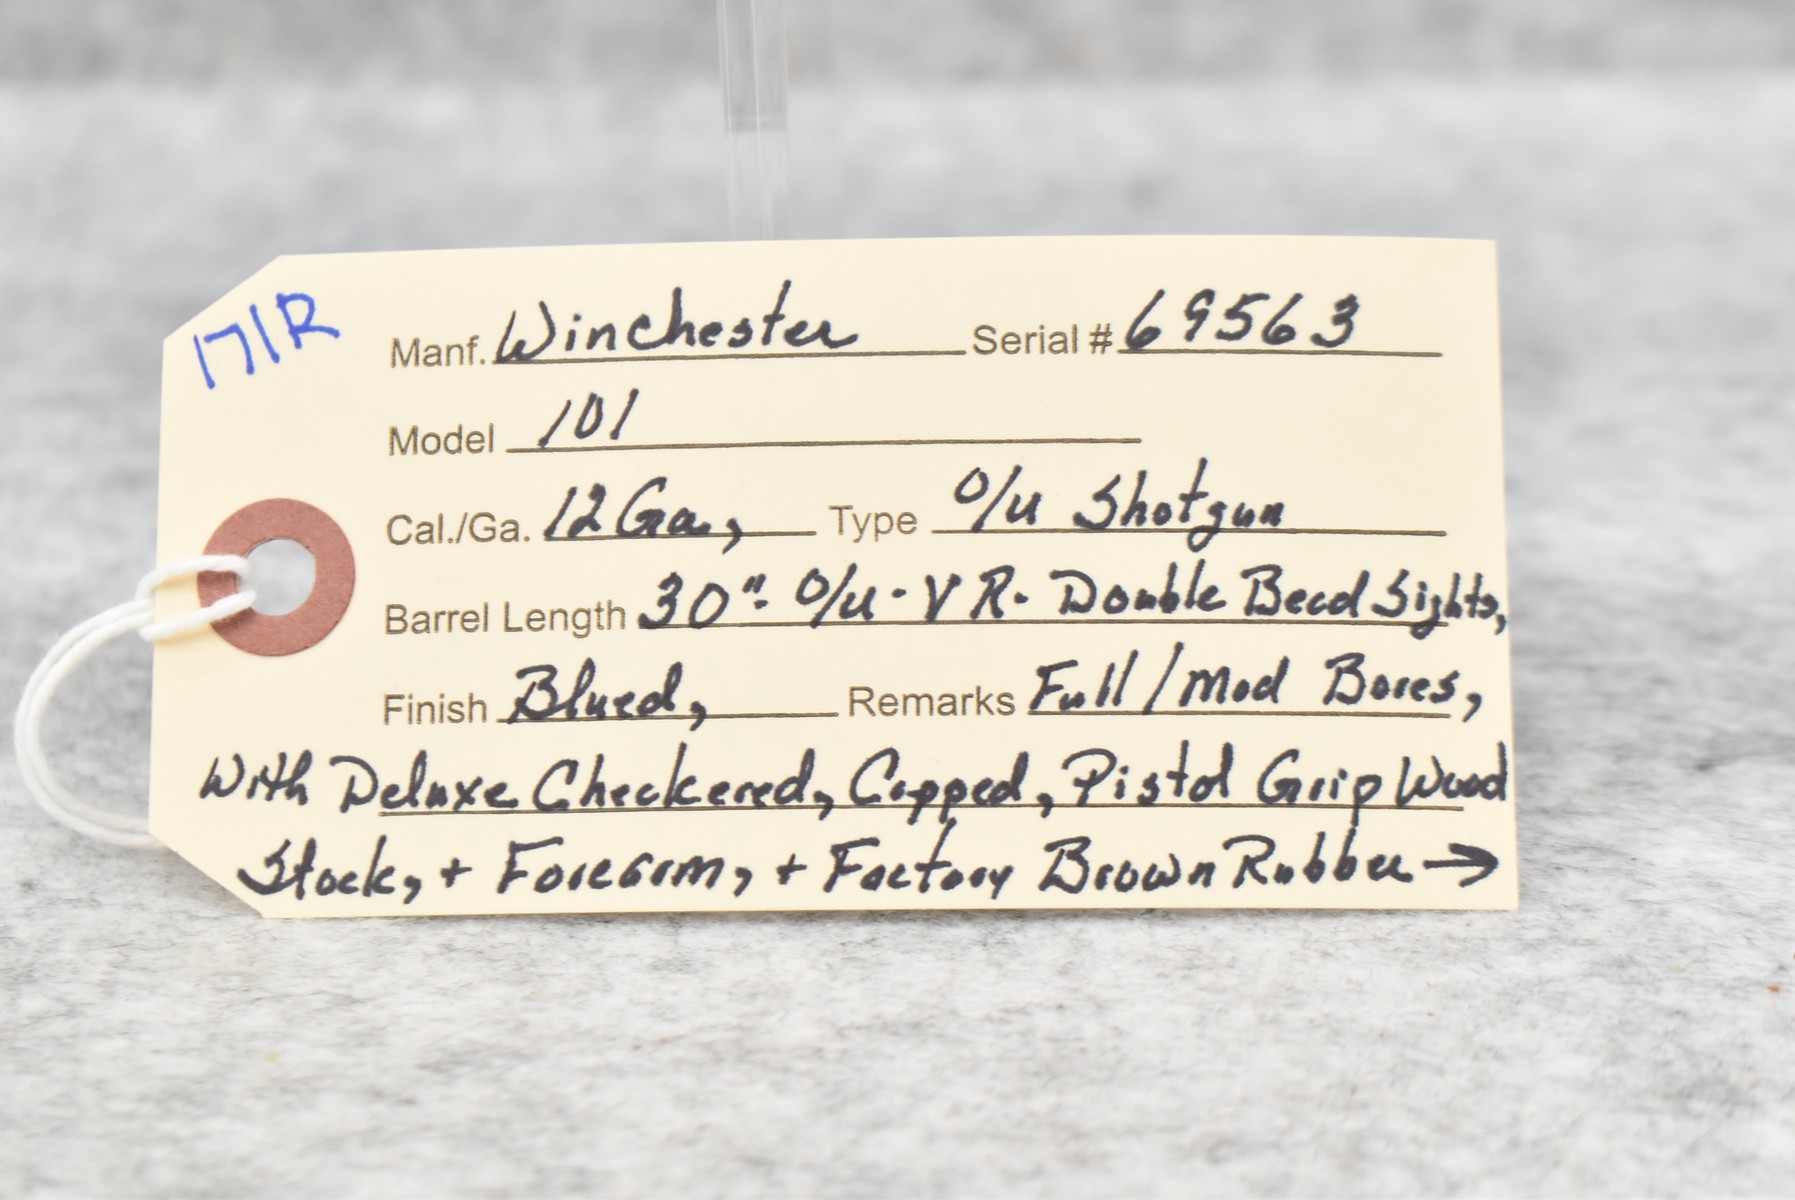 171R
Manf. Winchester Serial # 69563
Model 101
Cal./Ga. 12 Ga, Type O/U Shotgun
Barrel Length 30"- O/U - VR - Double Bead Sights,
Finish Blued, Remarks Full/Mod Bores,
With Deluxe Checkered, Capped, Pistol Grip Wood
Stock, + Forearm, + Factory Brown Rubber →